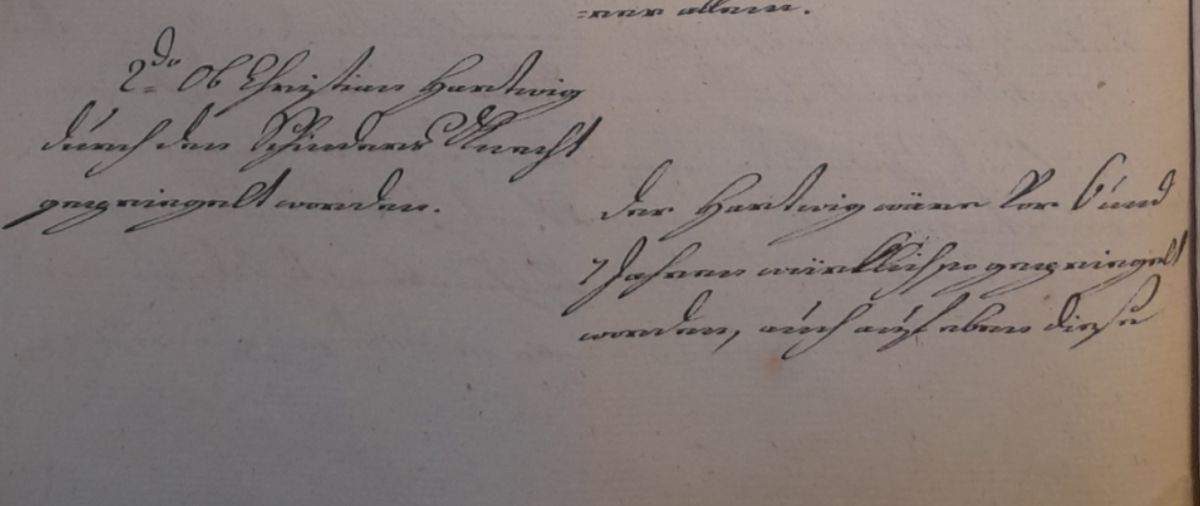 =ner allein.
2do Ob Christian Hartwig
durch den Schinders Knecht
gepriegelt worden.
der Hartwig wäre vor 6 und
7 Jahren würcklich so gepriegelt
worden, auch auf eben diese